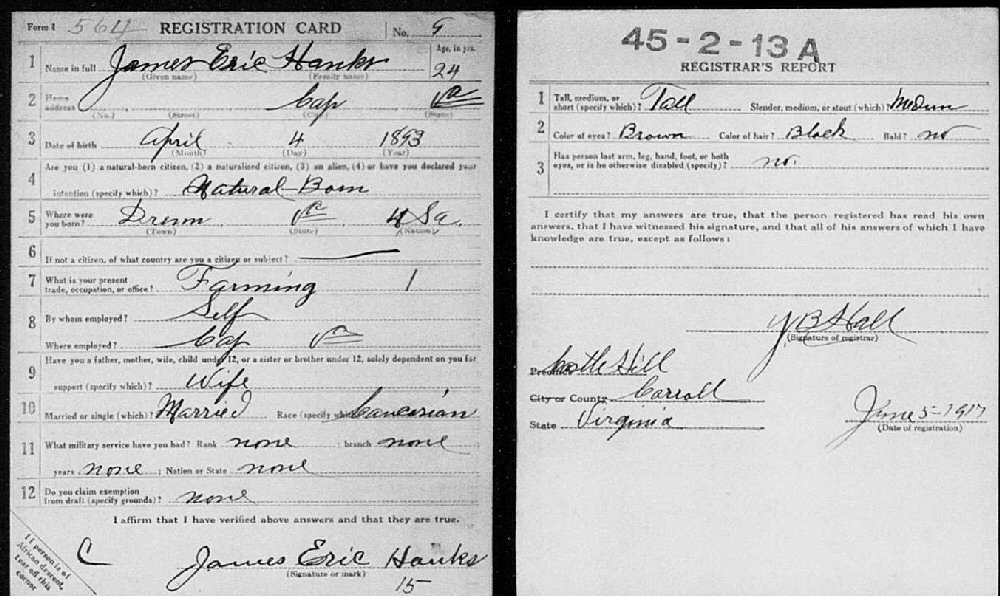 Form 1 564 REGISTRATION CARD No. 9
1 Name in full James Eric Hanks Age, in yrs. 24
(Given name) (Family name)
2 Home address Cap Va
(No.) (Street) (City) (State)
3 Date of birth April 4 1893
(Month) (Day) (Year)
4 Are you (1) a natural-born citizen, (2) a naturalized citizen, (3) an alien, (4) or have you declared your
intention (specify which)? Natural-Born
5 Where were you born? Va
(Town) (State) (Nation)
6 If not a citizen, of what country are you a citizen or subject?
7 What is your present trade, occupation, or office? Farming 1
8 By whom employed? Self
Where employed? Cap Va
9 Have you a father, mother, wife, child under 12, or a sister or brother under 12, solely dependent on you for
support (specify which)? Wife
10 Married or single (which)? Married Race (specify which)? Caucasian
11 What military service have you had? Rank none branch none
years none ; Nation or State none
12 Do you claim exemption from draft (specify grounds)? none
I affirm that I have verified above answers and that they are true.
C James Eric Hanks
(Signature or mark)
15
If person is of
African descent,
tear off this
corner
45-2-13 A
REGISTRAR'S REPORT
1 Tall, medium, or short (specify which)? Tall Slender, medium, or stout (which)? Medium
2 Color of eyes? Brown Color of hair? Black Bald? no
3 Has person lost arm, leg, hand, foot, or both eyes, or is he otherwise disabled (specify)? no.
I certify that my answers are true, that the person registered has read his own
answers, that I have witnessed his signature, and that all of his answers of which I have
knowledge are true, except as follows:
Hall
(Signature of registrar)
Precinct Hill
City or County Carroll
State Virginia
June 5-1917
(Date of registration)